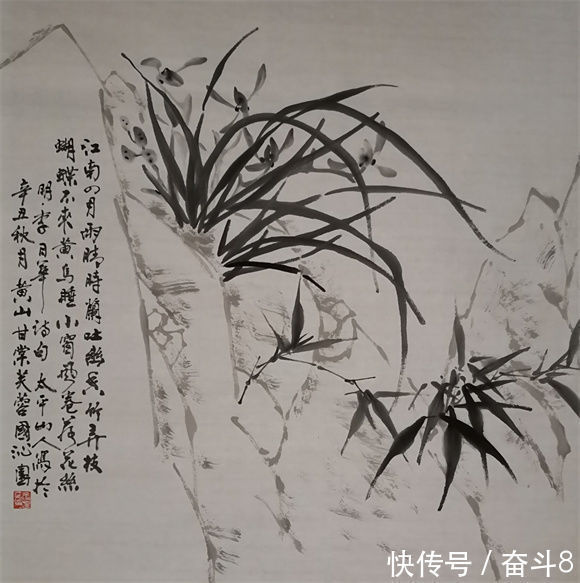 江南四月雨晴時蘭吐幽香竹弄枝
蝴蝶不來黄鳥睡小窗風卷落花絲
明李日華詩句太平山人寫於
辛丑秋月黄山甘棠芙蓉國沁園
快传号 / 奋斗8